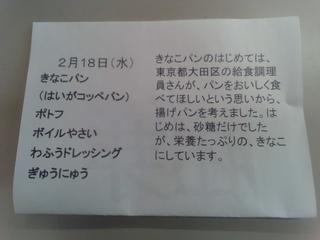 2月18日(水)
きなこパン
(はいがコッペパン)
ポトフ
ボイルやさい
わふうドレッシング
ぎゅうにゅう
きなこパンのはじめては、
東京都大田区の給食調理
員さんが、パンをおいしく食
べてほしいという思いから、
揚げパンを考えました。は
じめは、砂糖だけでした
が、栄養たっぷりの、きなこ
にしています。